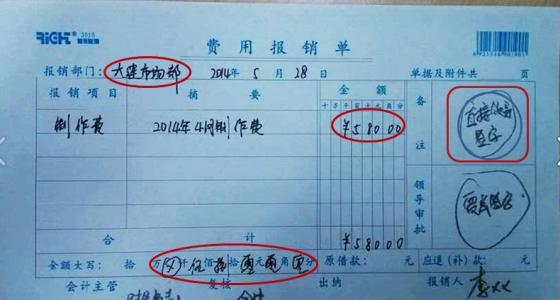 RiCH 2015
费用报销单
报销部门: 大建市场部 2014年 5月 28日 单据及附件共 页
报销项目 摘要 金额 备注
十万千百十元角分
制作费 2014年4月制作费 ¥58000 直接领导签字
领导审批
合计 ¥58000
金额大写: 拾 万 仟 伍佰 捌拾 零元 零角 零分 原借款: 元 应退(补)款: 元
会计主管 复核 出纳 报销人